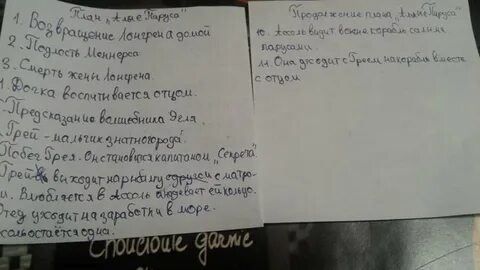 План „Алые Паруса"
1. Возвращение Лонгрена домой
2. Подлость Меннерса
3. Смерть жены Лонгрена.
4. Дочка воспитывается отцом.
Предсказание волшебника Эгля.
Грей - мальчик знатного рода.
Побег Грея. Он становится капитаном „Секрета".
Грей выходит на рыбалку с другом с матро-
м. Влюбляется в Ассоль и надевает ей кольцо.
Отец уходит на заработки в море.
соль остаётся одна.
Продолжение плана „Алые Паруса"
10. Ассоль видит в окне корабль с алыми
парусами.
11. Она уходит с Греем на корабль вместе
с отцом